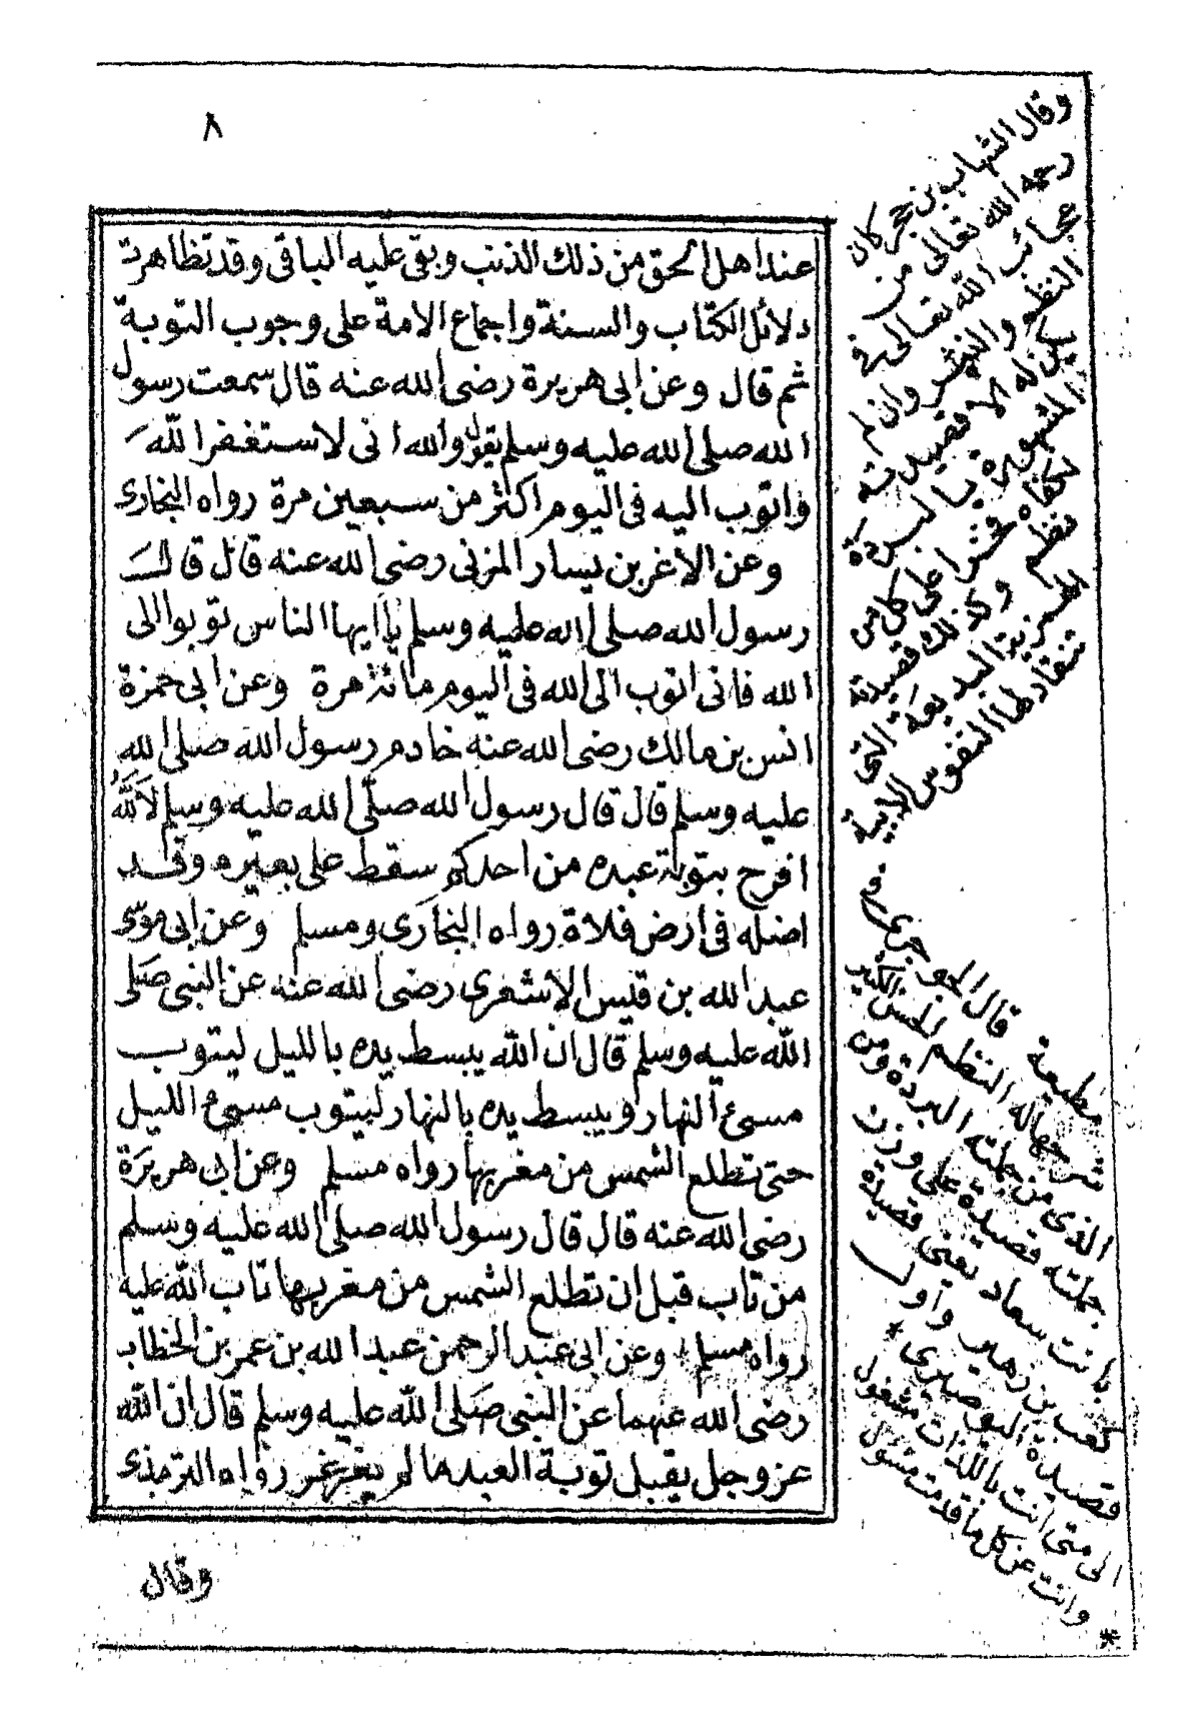 ٨
عند اهل الحق من ذلك الذنب وبقى عليه الباقى وقد تظاهرت
دلائل الكتاب والسنة واجماع الامة على وجوب التوبة
ثم قال وعن ابى هريرة رضى الله عنه قال سمعت رسول
الله صلى الله عليه وسلم يقول والله انى لاستغفر الله
واتوب اليه فى اليوم اكثر من سبعين مرة رواه البخارى
وعن الاغر بن يسار المزنى رضى الله عنه قال قال
رسول الله صلى الله عليه وسلم يا ايها الناس توبوا الى
الله فانى اتوب الى الله فى اليوم مائة مرة وعن ابى حمزة
انس بن مالك رضى الله عنه خادم رسول الله صلى الله
عليه وسلم قال قال رسول الله صلى الله عليه وسلم لَلّٰهُ
افرح بتوبة عبده من احدكم سقط على بعيره وقد
اضله فى ارض فلاة رواه البخارى ومسلم وعن ابى موسى
عبد الله بن قيس الاشعرى رضى الله عنه عن النبى صلى
الله عليه وسلم قال ان الله يبسط يده بالليل ليتوب
مسىء النهار ويبسط يده بالنهار ليتوب مسىء الليل
حتى تطلع الشمس من مغربها رواه مسلم وعن ابى هريرة
رضى الله عنه قال قال رسول الله صلى الله عليه وسلم
من تاب قبل ان تطلع الشمس من مغربها تاب الله عليه
رواه مسلم وعن ابى عبد الرحمن عبد الله بن عمر بن الخطاب
رضى الله عنهما عن النبى صلى الله عليه وسلم قال ان الله
عز وجل يقبل توبة العبد ما لم يغرغر رواه الترمذى
وقال
وقال الشهاب بن حجر كان
رحمه الله تعالى من
عجائب الله تعالى فى
النظم والنثر وان لم
يكن له الا قصيدته
المشهورة بالبردة
لكفاه فخرا على كل من
نظم وكذلك قصيدته
الهمزية البديعة التى
تنقاد لها النفوس الابية
قال الجوجرى فى
مطيعة
شرحها له النظم الحسن الكثير
الذى من جملته البردة ومن
جملته قصيدة على وزن
بانت سعاد يعنى قصيدة
كعب بن زهير واول
قصيدة البوصيرى *
الى متى انت باللذات مشغول
وانت عن كل ما قدمت مسئول
*